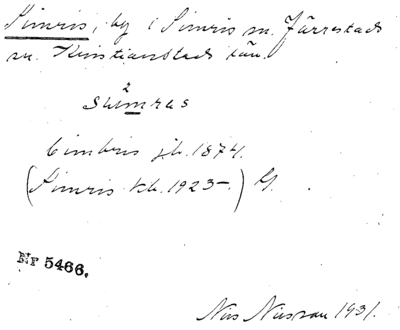 Simris, by i Simris sn. Järrestads
sn. Kristianstads län.
2
summas
Cimbris jb. 1874.
(Simris kb. 1923-) G.
Nr 5466.
Nils 1931.